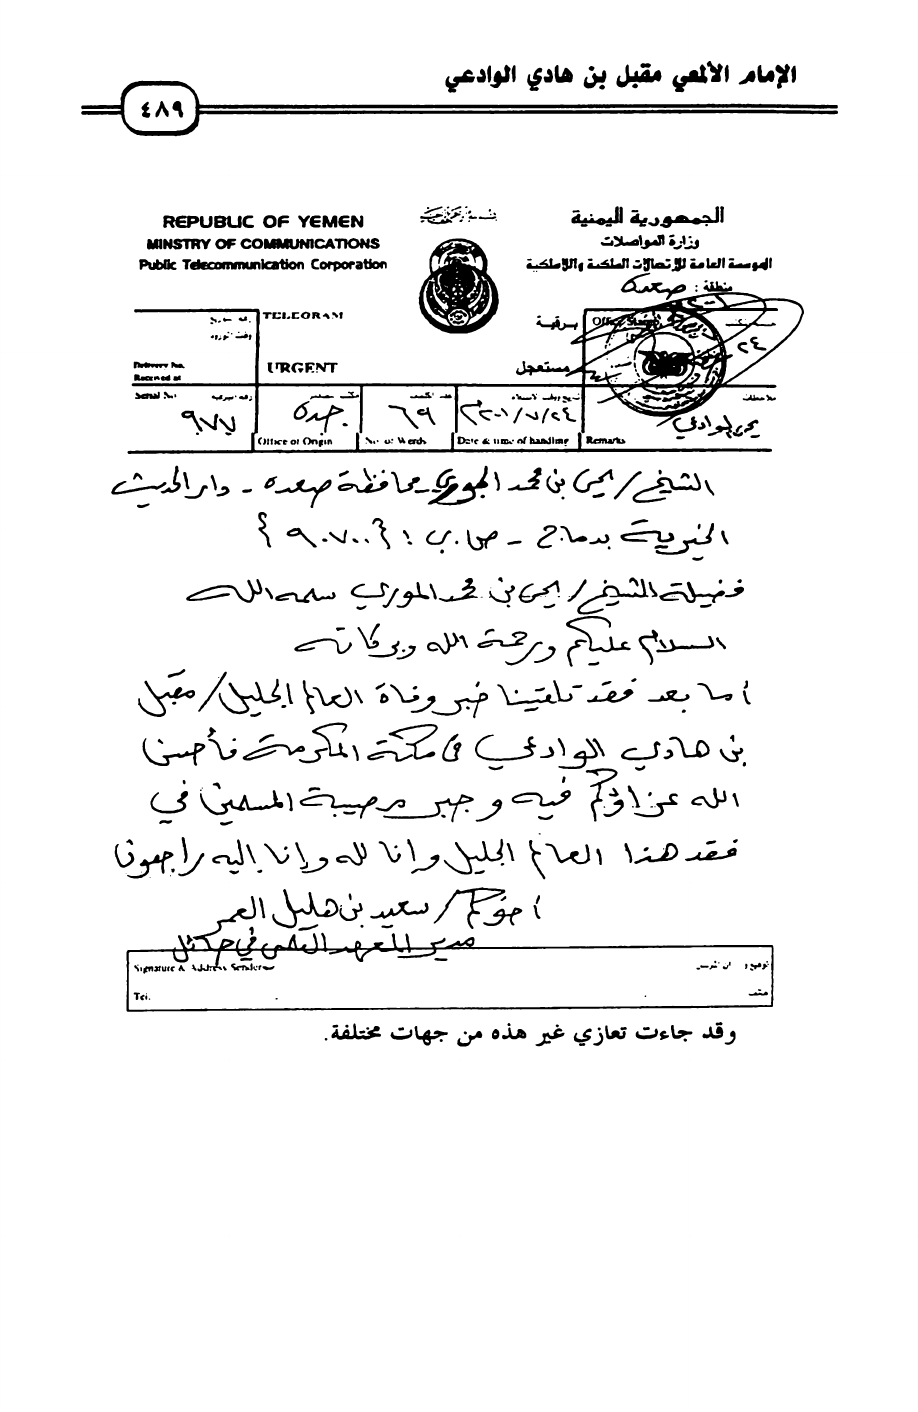 الإمام الألمعي مقبل بن هادي الوادعي
٤٨٩
REPUBLIC OF YEMEN
MINSTRY OF COMMUNICATIONS
Public Telecommunication Corporation
الجمهورية اليمنية
وزارة المواصلات
المؤسسة العامة للإتصالات السلكية واللاسلكية
منطقة : صعدة
TELEGRAM
برقية
Office Stamp
٢٤
URGENT
مستعجل
Delivery No.
Received at
Serial No
رقم البرقية
٩٧٧
جدة
Office of Origin
٦٩
No. of Words
٢٠٠١/٧/٢٤م
Date & time of handling
ملاحظات
يحيى الوادعي
Remarks
الشيخ/ يحيى بن محمد الحجوري - محافظة صعده - دار الحديث
الخيرية بدماج - ص.ب : {٩٠٧٠٠}
فضيلة الشيخ/ يحيى بن محمد الموري سلمه الله
السلام عليكم ورحمة الله وبركاته
أما بعد فقد تلقينا خبر وفاة العالم الجليل/ مقبل
بن هادي الوادعي في مكة المكرمة فأحسن
الله عزاؤكم فيه وجبر مصيبة المسلمين في
فقد هذا العالم الجليل وإنا لله وإنا إليه راجعون
أخوكم/ سعيد بن هليل العمر
مدير المعهد العلمي في حائل
Signature & Address Sender
Tel.
هاتف
وقد جاءت تعازي غير هذه من جهات مختلفة.